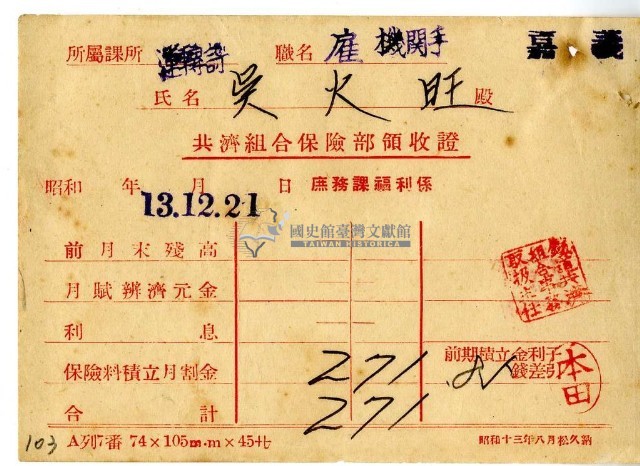 所屬課所 職名 雇 機関手 嘉義
氏名 吳火旺 殿
共濟組合保險部領收證
昭和 年 月 日 庶務課福利係
13.12.21
國史館臺灣文獻館
TAIWAN HISTORICA
前月末殘高
月賦辨濟元金
利息
保險料積立月割金 271
前期積立金利子
錢差引
本田
合計 271
103 A列7番 74×105m.m×45 昭和十三年八月松久納